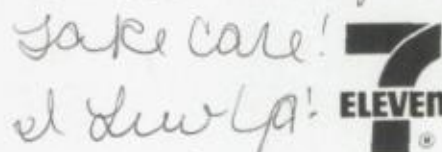 Take Care!
I Luv Ya!
7
ELEVEN
®